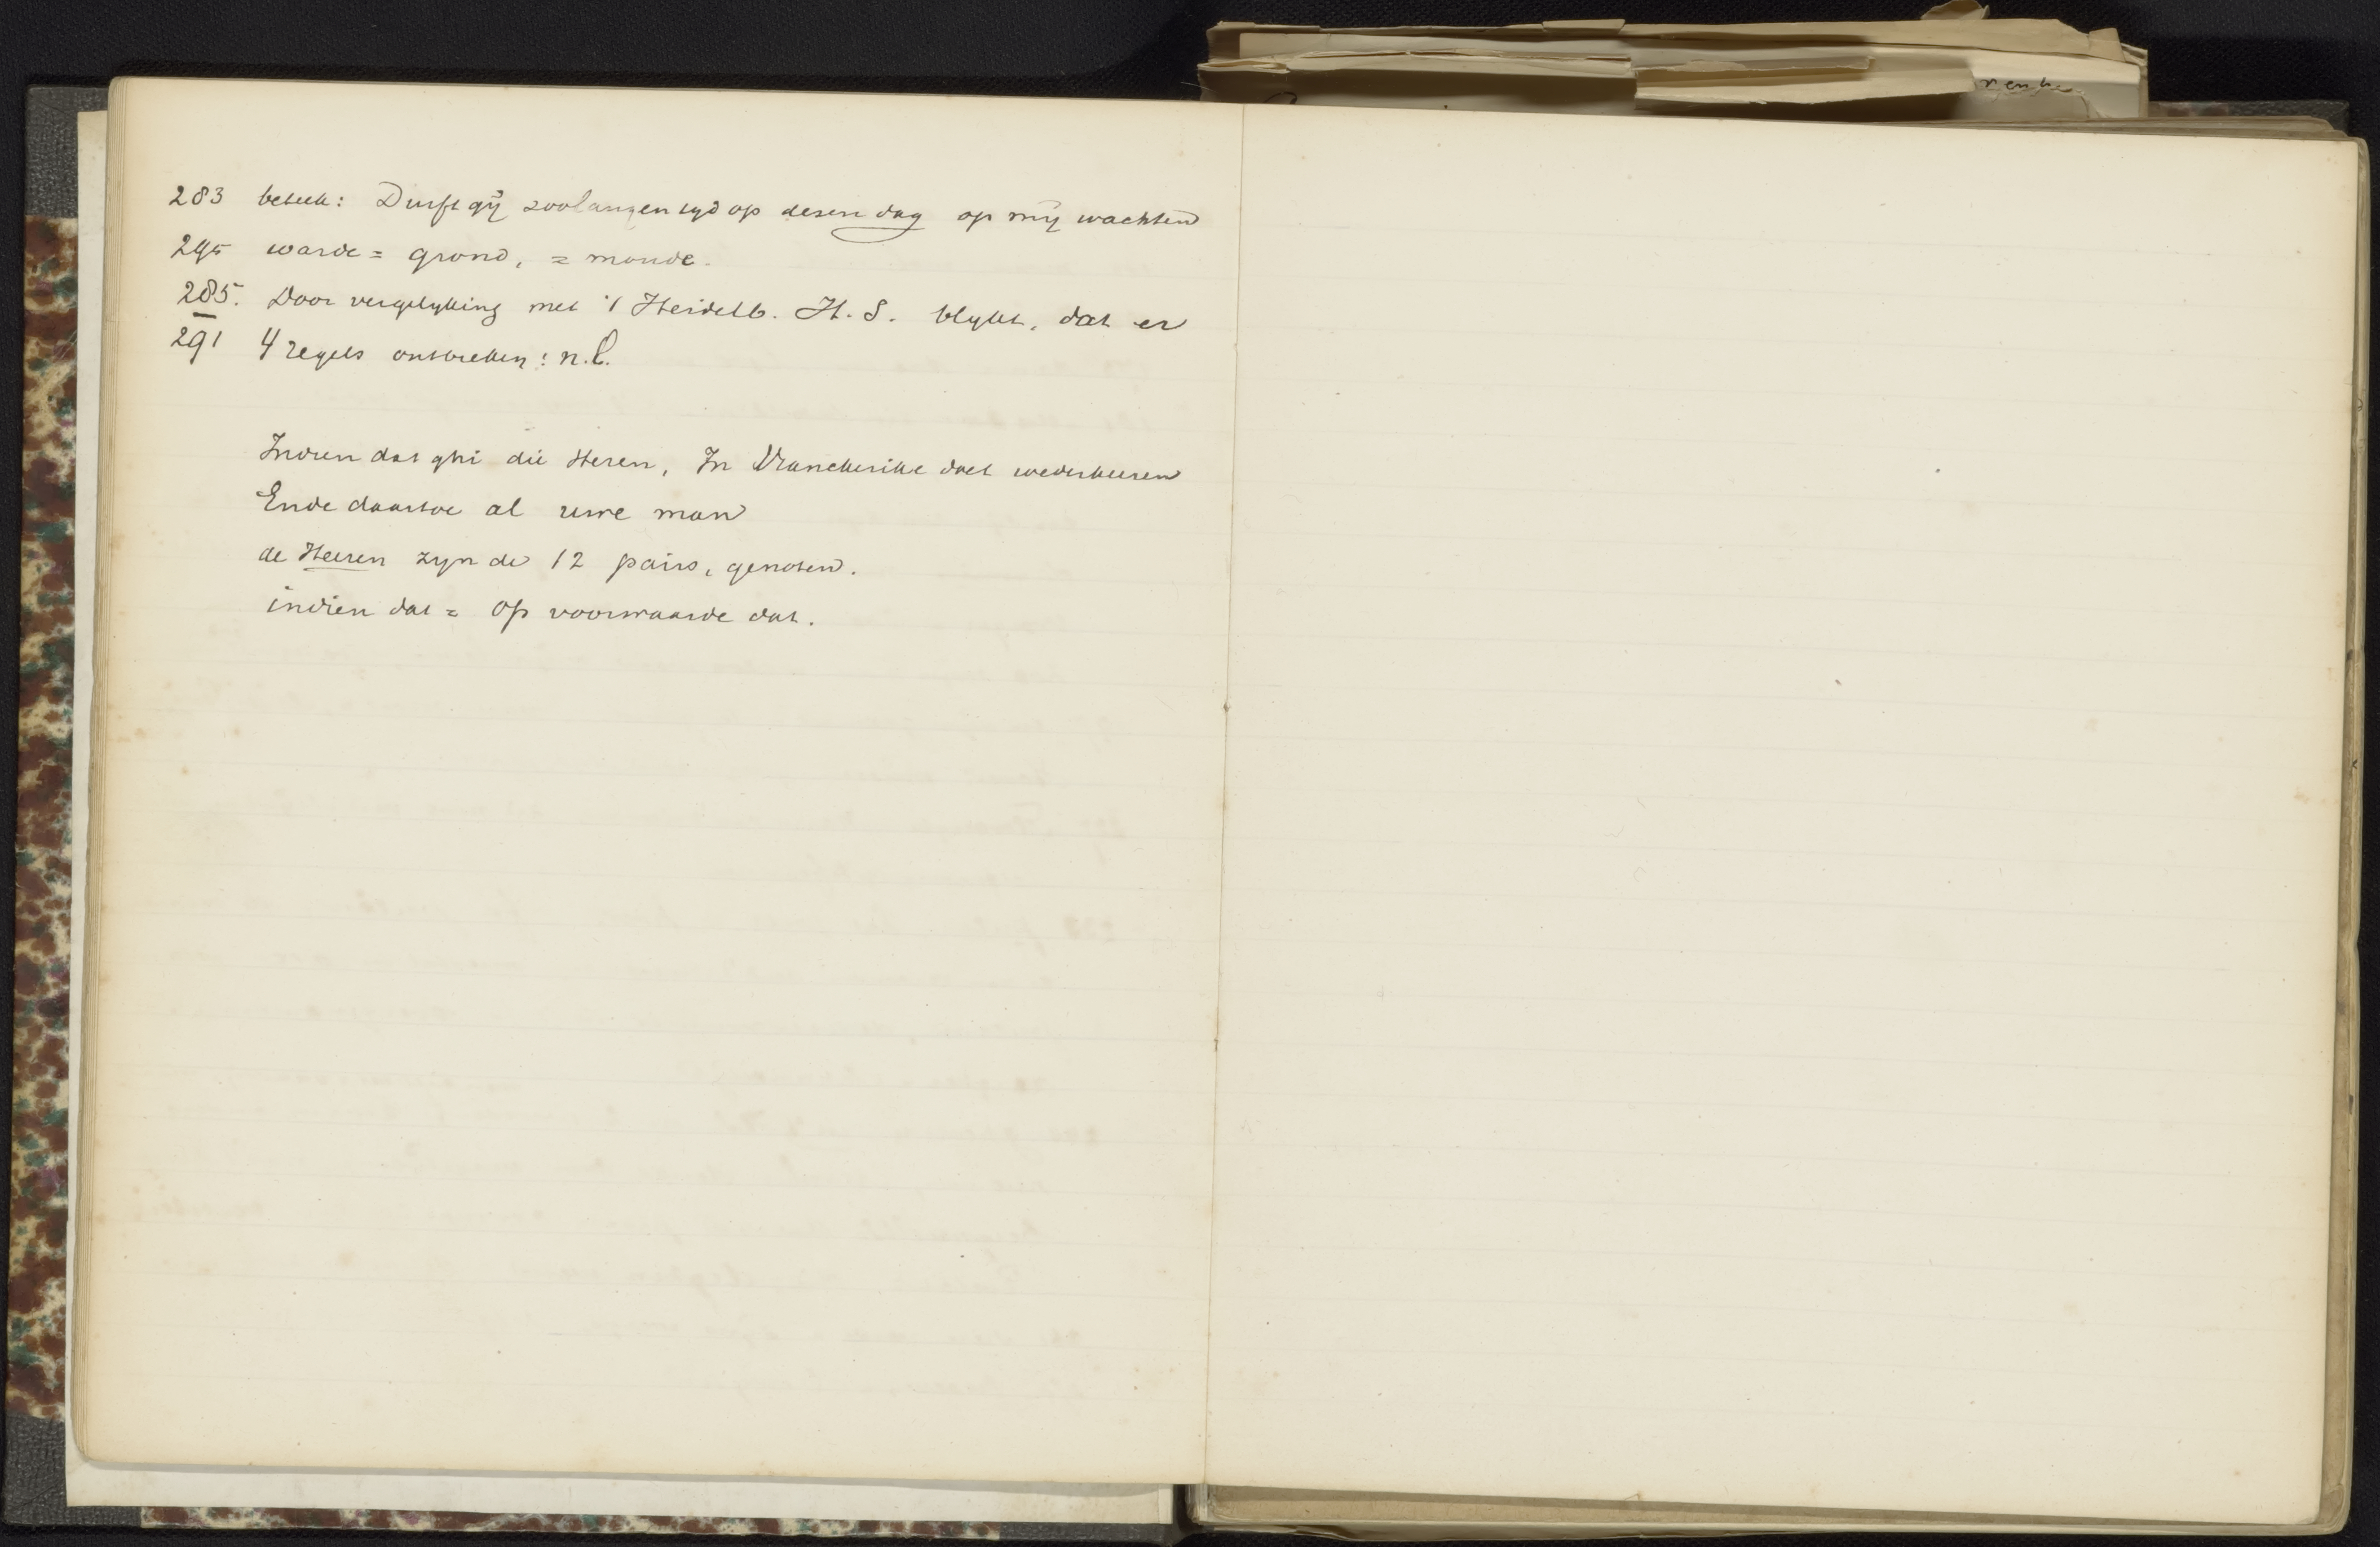 283 beteek: Durft gij zoolangen tyd op desen dag op mij wachten
295 warde = grond, = monde.
285. Door vergelyking met 't Heidelb. H.S. blykt, dat er
291 4 regels ontbreken: n.l.
Indien dat ghi die Heren, In Vranckrike doet wederkeeren
Ende daartoe al uwe man
de Heeren zyn de 12 pairs, genoten.
indien dat = op voorwaarde dat.